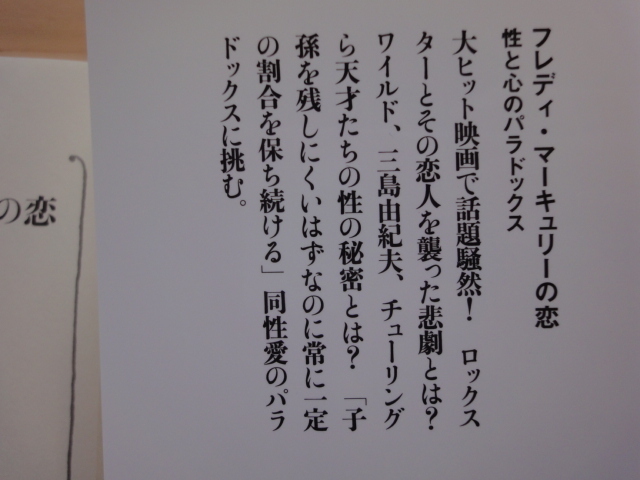 フレディ・マーキュリーの恋
性と心のパラドックス
大ヒット映画で話題騒然！　ロックス
ターとその恋人を襲った悲劇とは？
ワイルド、三島由紀夫、チューリング
ら天才たちの性の秘密とは？　「子
孫を残しにくいはずなのに常に一定
の割合を保ち続ける」同性愛のパラ
ドックスに挑む。
の恋